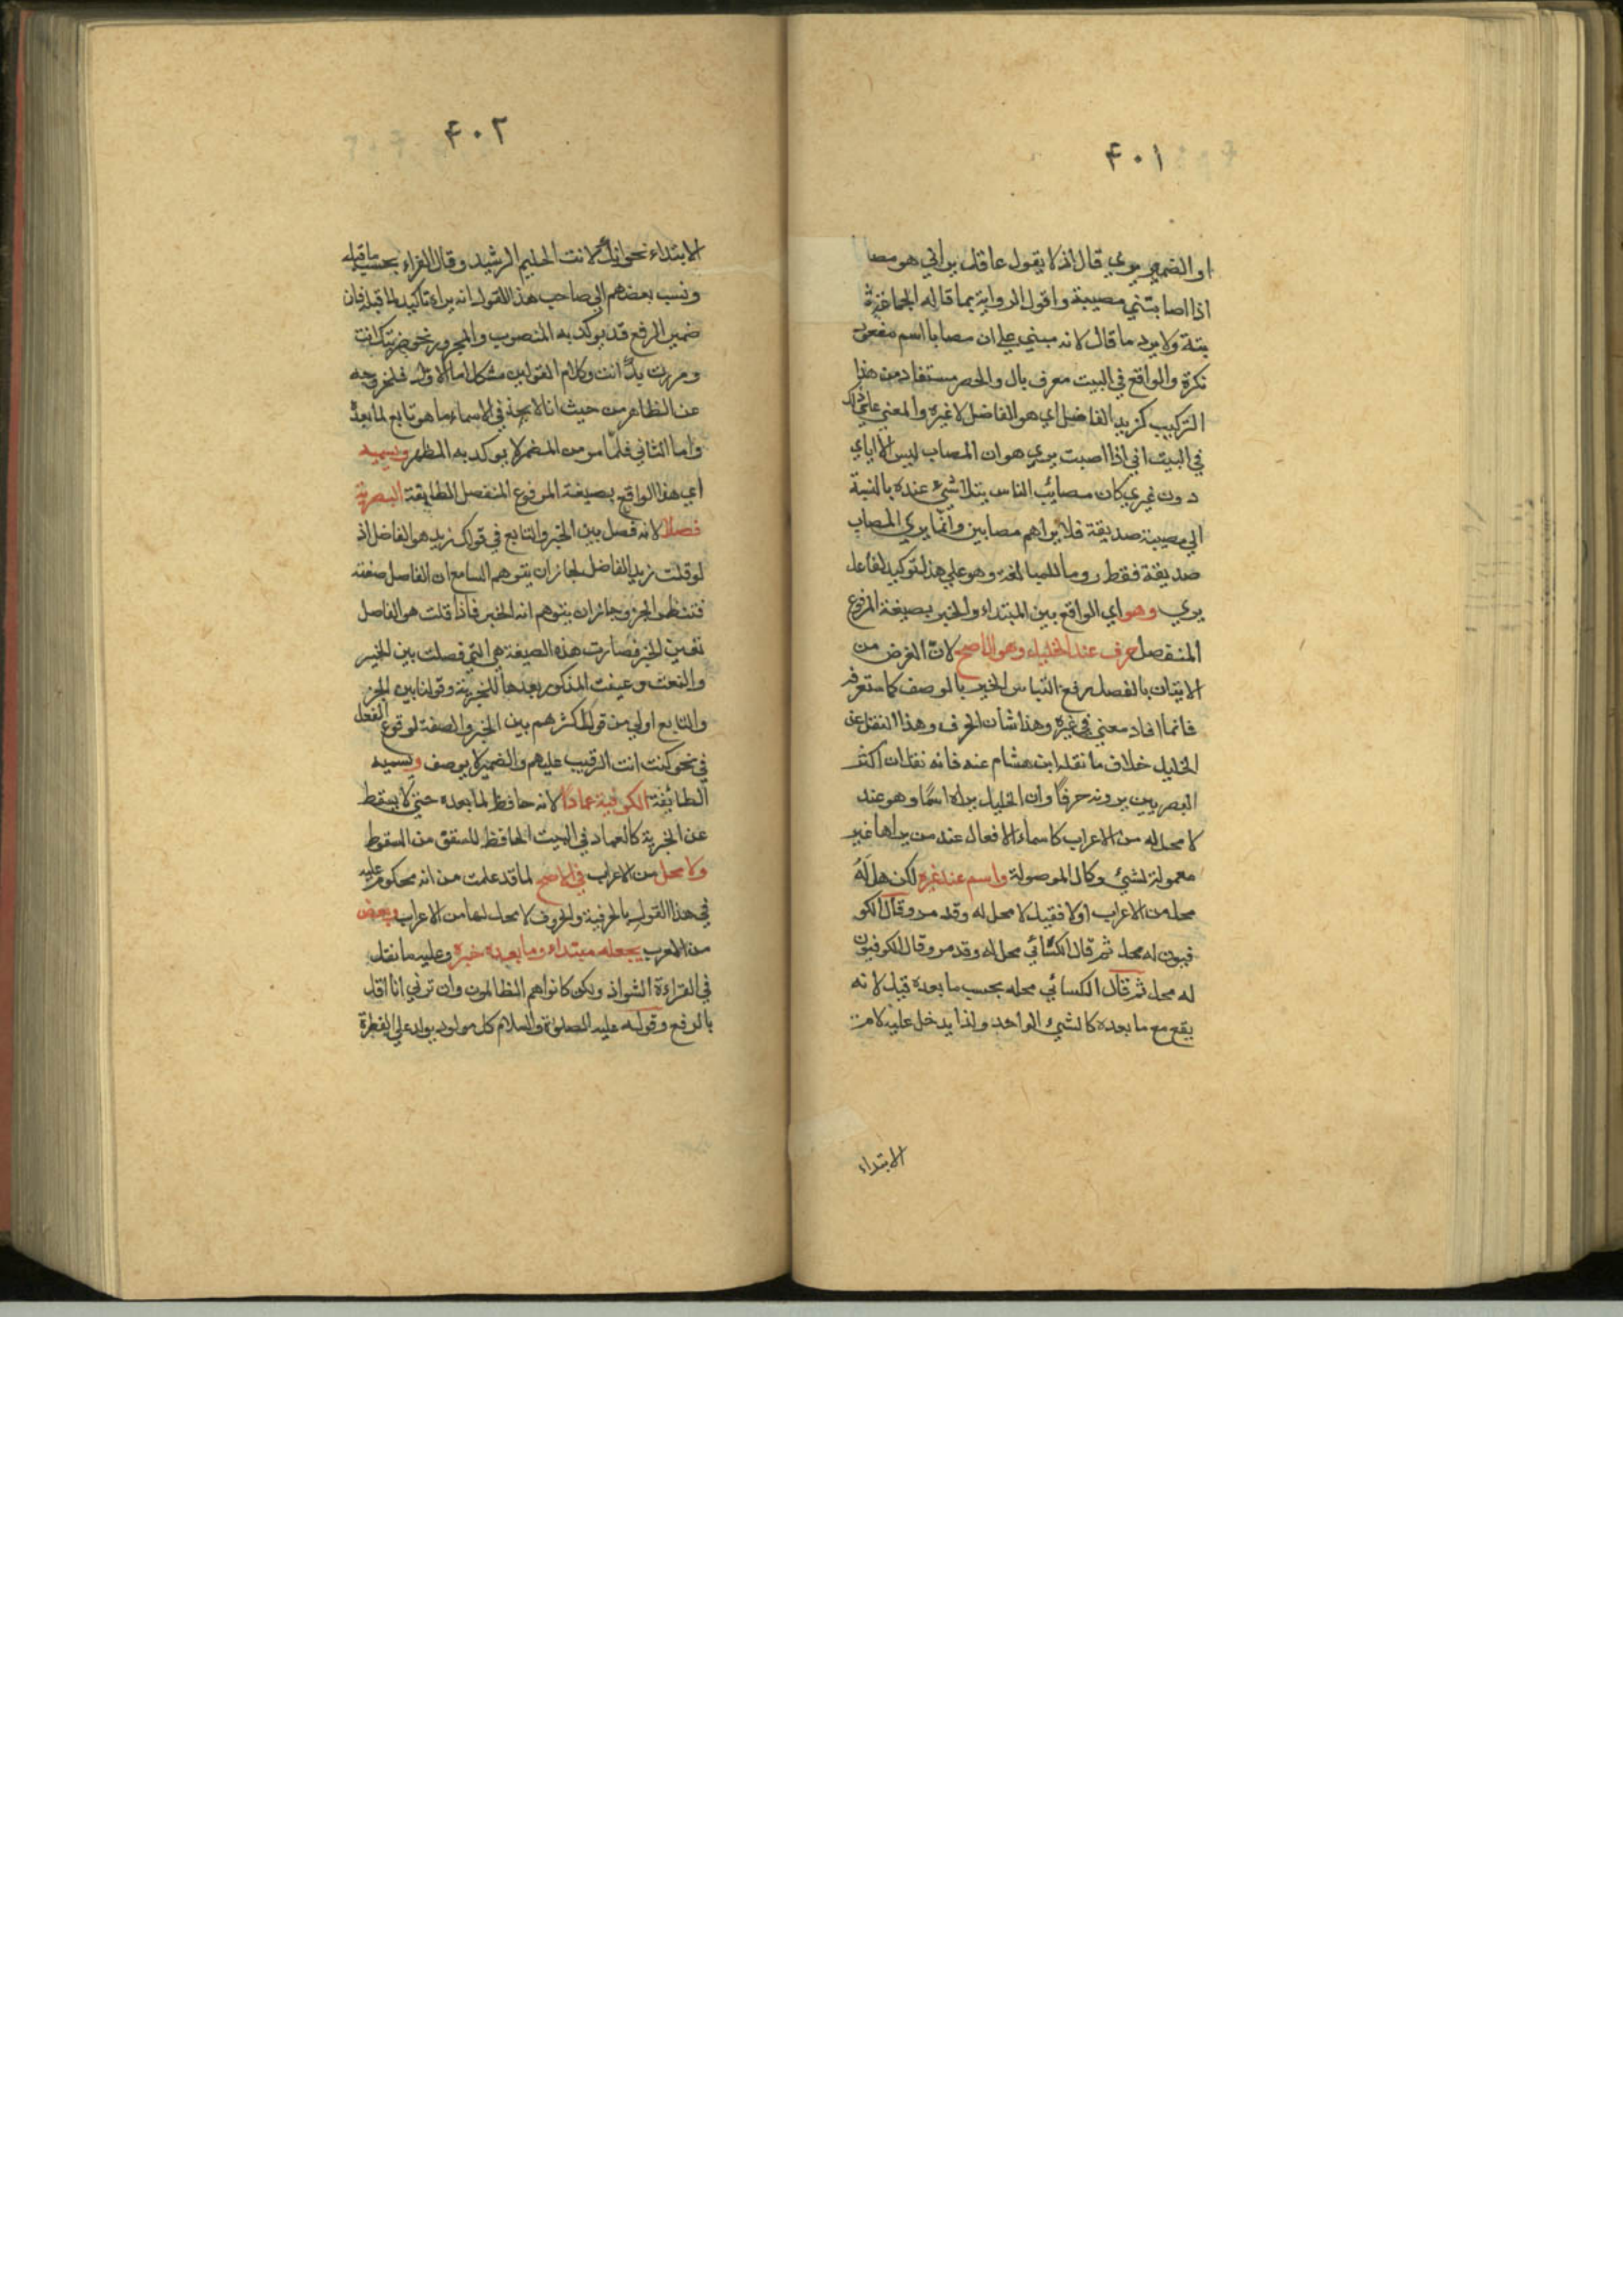 ٤٠١
او الضمير يري قال اذ لا يقول عاقل يراني هو مصا
اذا اصابتني مصيبة واقول الرواية بما قاله الجماعة ثا
بتة ولا يرد ما قال لانه مبني علي ان مصابا اسم مفعول
نكرة والواقع في البيت معرف بال والحصر مستفاد من هذا
التركيب كزيد الفاضل اي هو الفاضل لا غيره والمعني علي ذلك
في البيت اني اذا اصبت يري هو ان المصاب ليس الا اياي
دون غيري كان مصائب الناس بتلاشيء عنده بالنسبة
الي مصيبة صديقة فلا يراهم مصابين وانما يري المصاب
صديقة فقط روما للمبالغة وهو علي هذا توكيد لفاعل
يري وهو اي الواقع بين المبتداء والخبر بصيغة المرفوع
المنفصل حرف عند الخليل وهو الاصح لان الغرض من
الاتيان بالفصل رفع التباس الخبر بالوصف كما ستعرفه
فانما افاد معني في غيره وهذا شان الحرف وهذا النقل عن
الخليل خلاف ما نقله ابن هشام عنه فانه نقل ان اكثر
البصريين يرونه حرفا وان الخليل يراه اسما وهو عند
لا محل له من الاعراب كاسماء الافعال عند من يراها غير
معمولة لشيء وكال الموصولة واسم عند غيره لكن هل له
محل من الاعراب اولا فقيل لا محل له وقد مر وقال الكو
فيون له محل ثم قال الكسائي محل له وقد مر وقال الكوفيون
له محل ثم قال الكسائي محله بحسب ما بعده قيل لانه
يقع مع ما بعده كالشيء الواحد ولذا يدخل عليه لام
الابتداء
٤٠٢
الابتداء نحو انك لانت الحليم الرشيد وقال الفراء بحسب ما قبله
ونسب بعضهم الي صاحب هذا القول انه يراه تاكيدا لما قبله فان
ضمير الرفع قد يوكد به المنصوب والمجرور نحو ضربتك انت
ومررت بك انت وكلام القولين مشكل اما الاول فلخروجه
عن الظاهر من حيث انا لا نجد في الاسماء ما هو تابع لما بعده
واما الثاني فلما مر من المضمر لا يوكد به المظهر ويسميه
اي هذا الواقع بصيغة المرفوع المنفصل الطايفة البصرية
فصلا لانه فصل بين الخبر والتابع في قولك زيد هو الفاضل اذ
لو قلت زيد الفاضل لجاز ان يتوهم السامع ان الفاصل صفته
فتنتظر الخبر وجائز ان يتوهم انه الخبر فاذا قلت هو الفاصل
تعين الخبر فصارت هذه الصيغة هي التي فصلت بين الخبر
والنعت وعينت المذكور بعدها للخبرية وقولنا بين الخبر
والتابع اولي من قول اكثرهم بين الخبر والصفة لوقوع الفصل
في نحو كنت انت الرقيب عليهم والضمير لا يوصف ويسميه
الطائفة الكوفية عمادا لانه حافظ لما بعده حتي لا يسقط
عن الخبرية كالعماد في البيت الحافظ للسقف من السقوط
ولا محل من الاعراب في الاصح لما قد علمت من انه محكوم عليه
في هذا القول بالحرفية والحروف لا محل لها من الاعراب وبعض
من العرب يجعله مبتداء وما بعده خبره وعليه ما نقل
في القراءة الشواذ ولكن كانوا هم الظالمون وان ترني انا اقل
بالرفع وقوله عليه الصلوة والسلام كل مولود يولد علي الفطرة